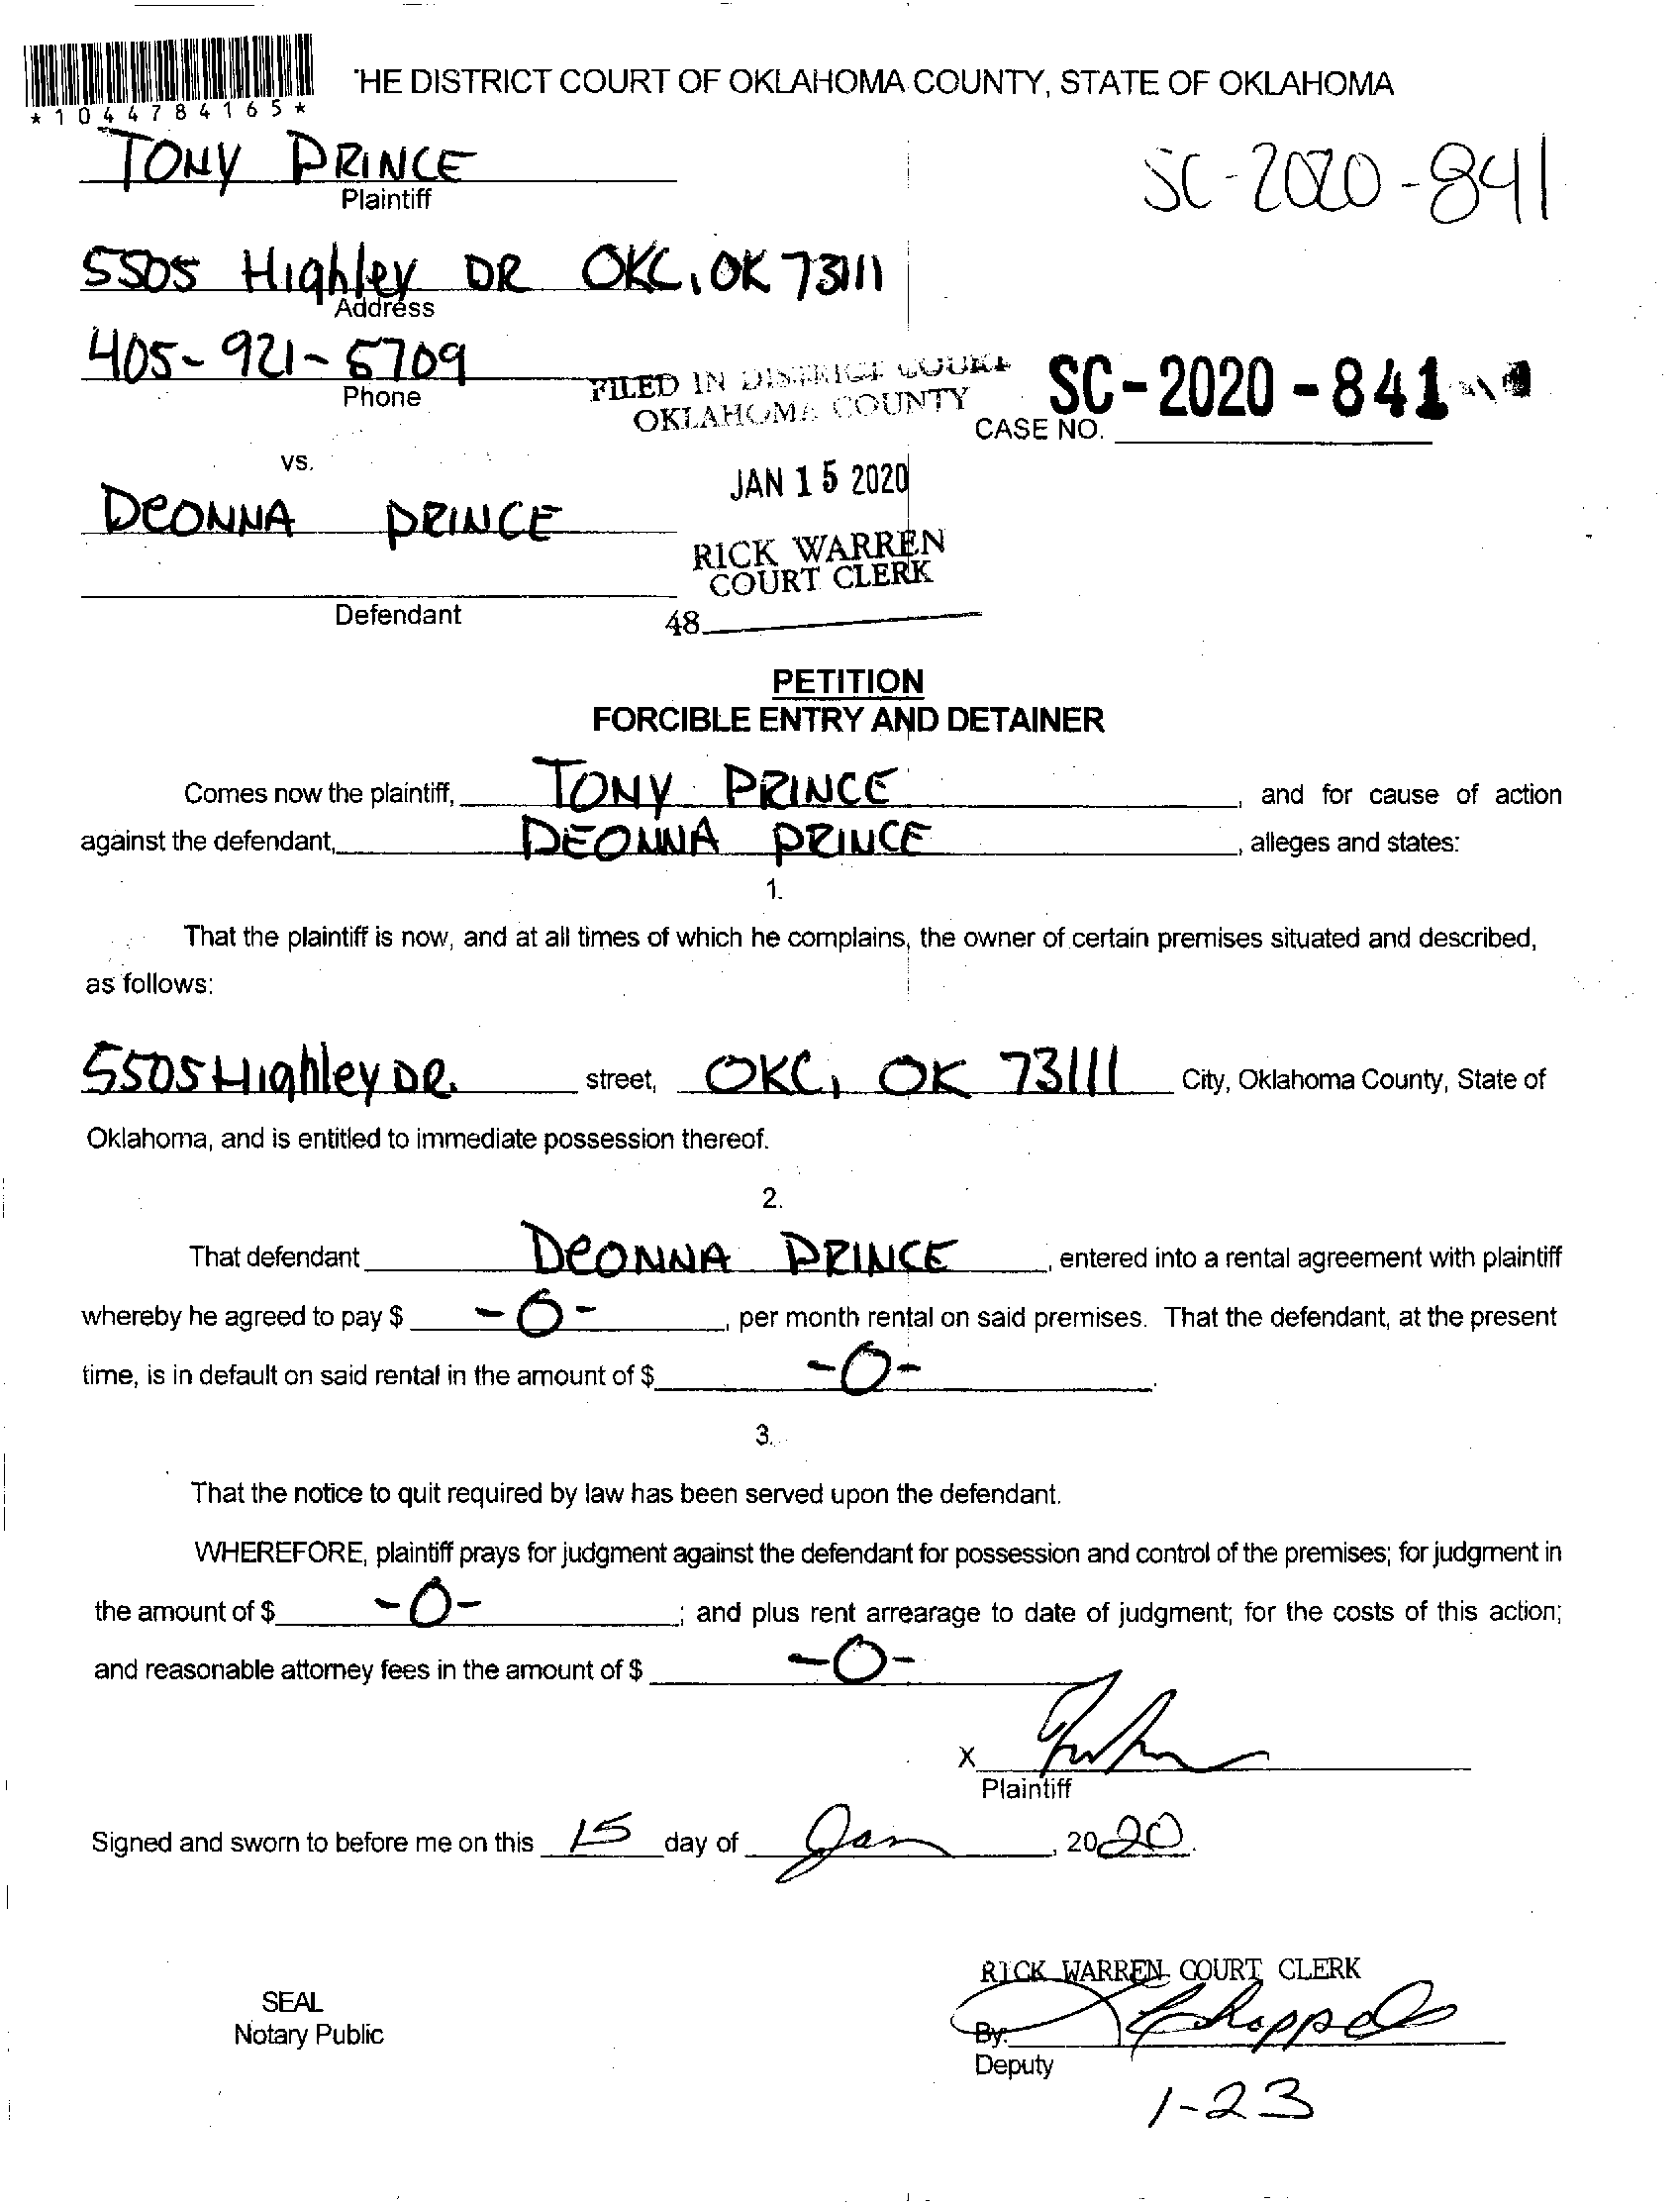 THE DISTRICT COURT OF OKLAHOMA COUNTY, STATE OF OKLAHOMA
*1044784165*
TONY PRINCE
Plaintiff
SC-2020-841
5505 Highley DR OKC, OK 73111
Address
405-921-5709
Phone
FILED IN DISTRICT COURT
OKLAHOMA COUNTY
SC-2020-841
CASE NO.
vs.
JAN 15 2020
DeONNA PRINCE
RICK WARREN
COURT CLERK
Defendant
48
PETITION
FORCIBLE ENTRY AND DETAINER
Comes now the plaintiff, TONY PRINCE, and for cause of action
against the defendant, DEONNA PRINCE, alleges and states:
1.
That the plaintiff is now, and at all times of which he complains, the owner of certain premises situated and described,
as follows:
5505 Highley DR. street, OKC, OK 73111 City, Oklahoma County, State of
Oklahoma, and is entitled to immediate possession thereof.
2.
That defendant DeONNA PRINCE, entered into a rental agreement with plaintiff
whereby he agreed to pay $ -0-, per month rental on said premises. That the defendant, at the present
time, is in default on said rental in the amount of $ -0-.
3.
That the notice to quit required by law has been served upon the defendant.
WHEREFORE, plaintiff prays for judgment against the defendant for possession and control of the premises; for judgment in
the amount of $ -0-; and plus rent arrearage to date of judgment; for the costs of this action;
and reasonable attorney fees in the amount of $ -0-
X
Plaintiff
Signed and sworn to before me on this 15 day of Jan, 2020.
RICK WARREN COURT CLERK
SEAL
Notary Public
By:
Deputy
1-23